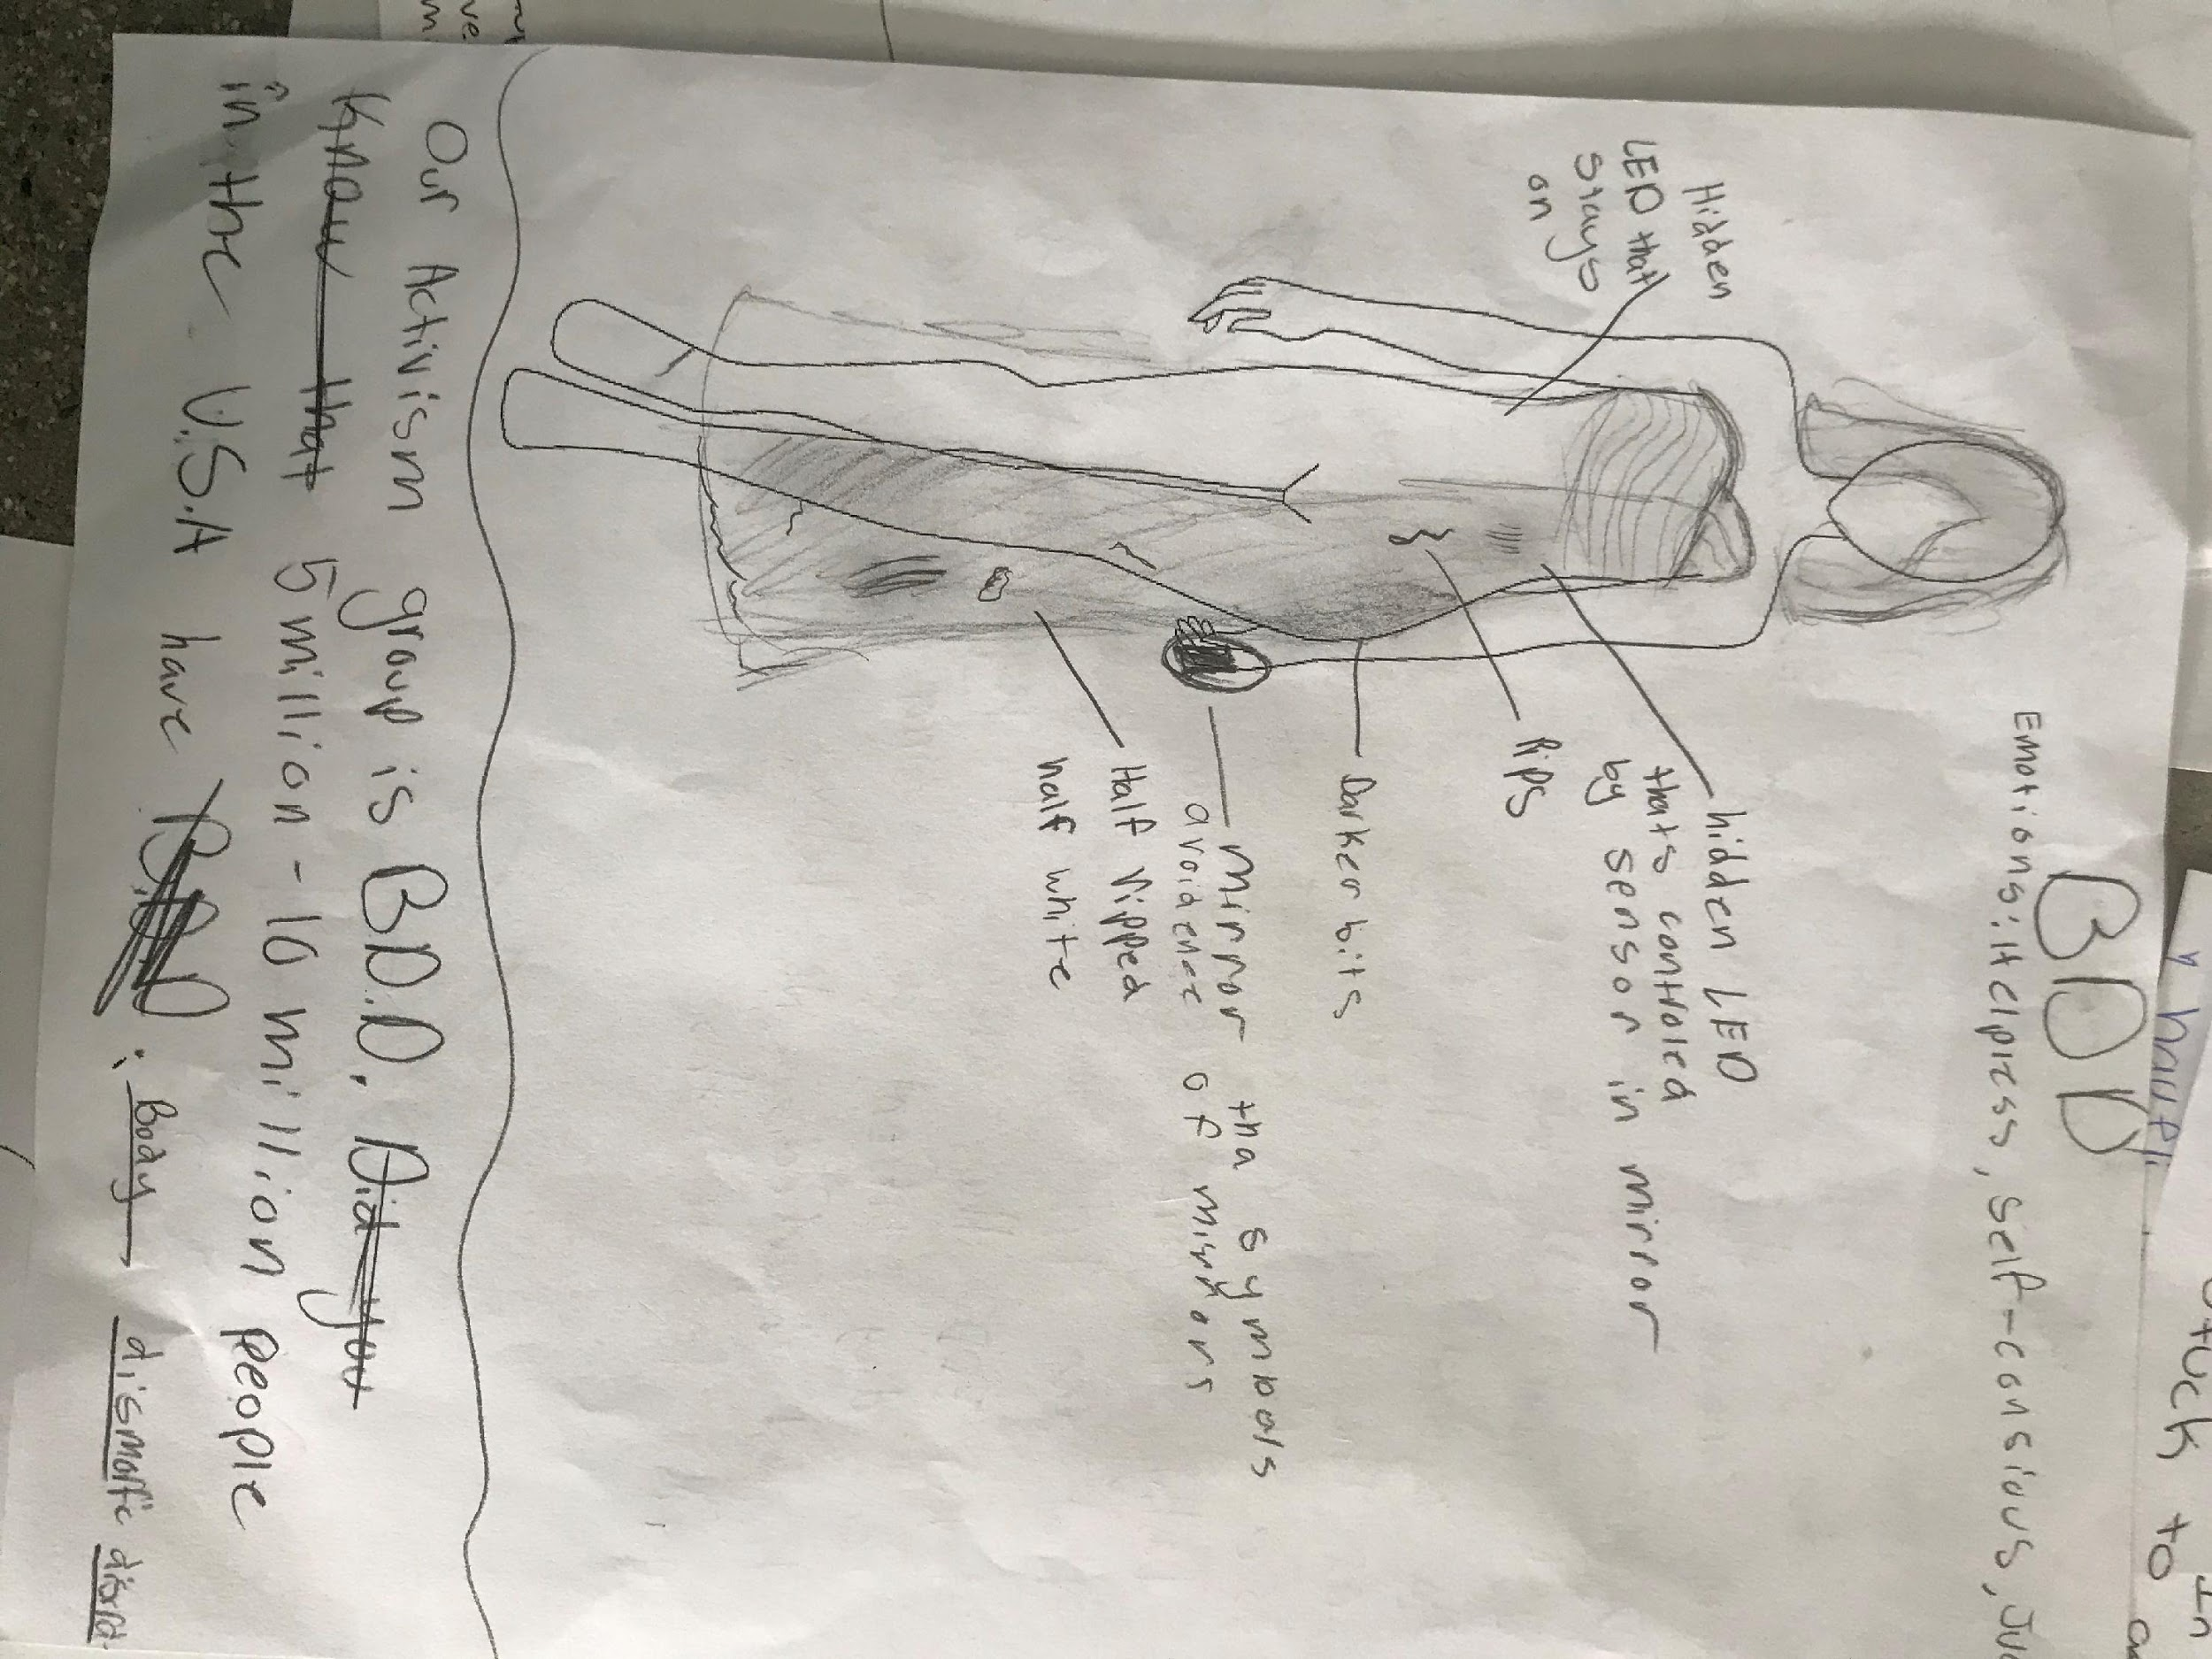 BDD
Emotions: Helpless, self-consious, Ju
Hidden
LED that
stays
on
hidden LED
thats controled
by sensor in mirror
Rips
Darker bits
mirror tha symbols
avoidence of mirrors
Half ripped
half white
Our Activism group is B.D.D. Did you
know that 5 million - 10 million people
in the U.S.A have B.D.D. : Body dismorfic disord
stuck to
In